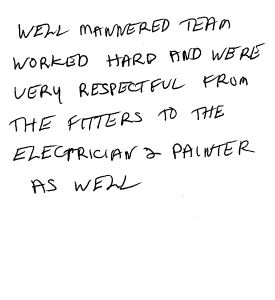 WELL MANNERED TEAM
WORKED HARD AND WERE
VERY RESPECTFUL FROM
THE FITTERS TO THE
ELECTRICIAN & PAINTER
AS WELL